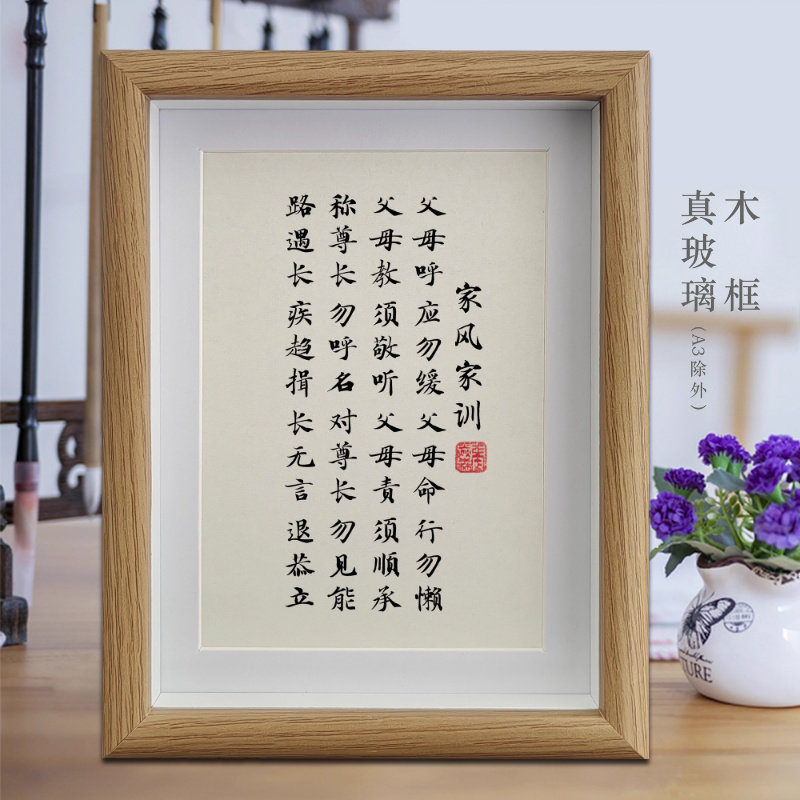 家风家训
父母呼应勿缓父母命行勿懒
父母教须敬听父母责须顺承
称尊长勿呼名对尊长勿见能
路遇长疾趋揖长无言退恭立
木框
真玻璃
(A3除外)